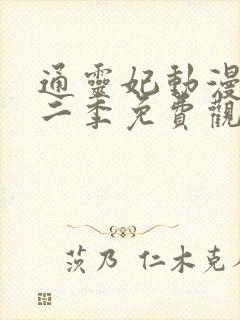 通靈妃動漫
二季免費觀
茨乃 仁木克